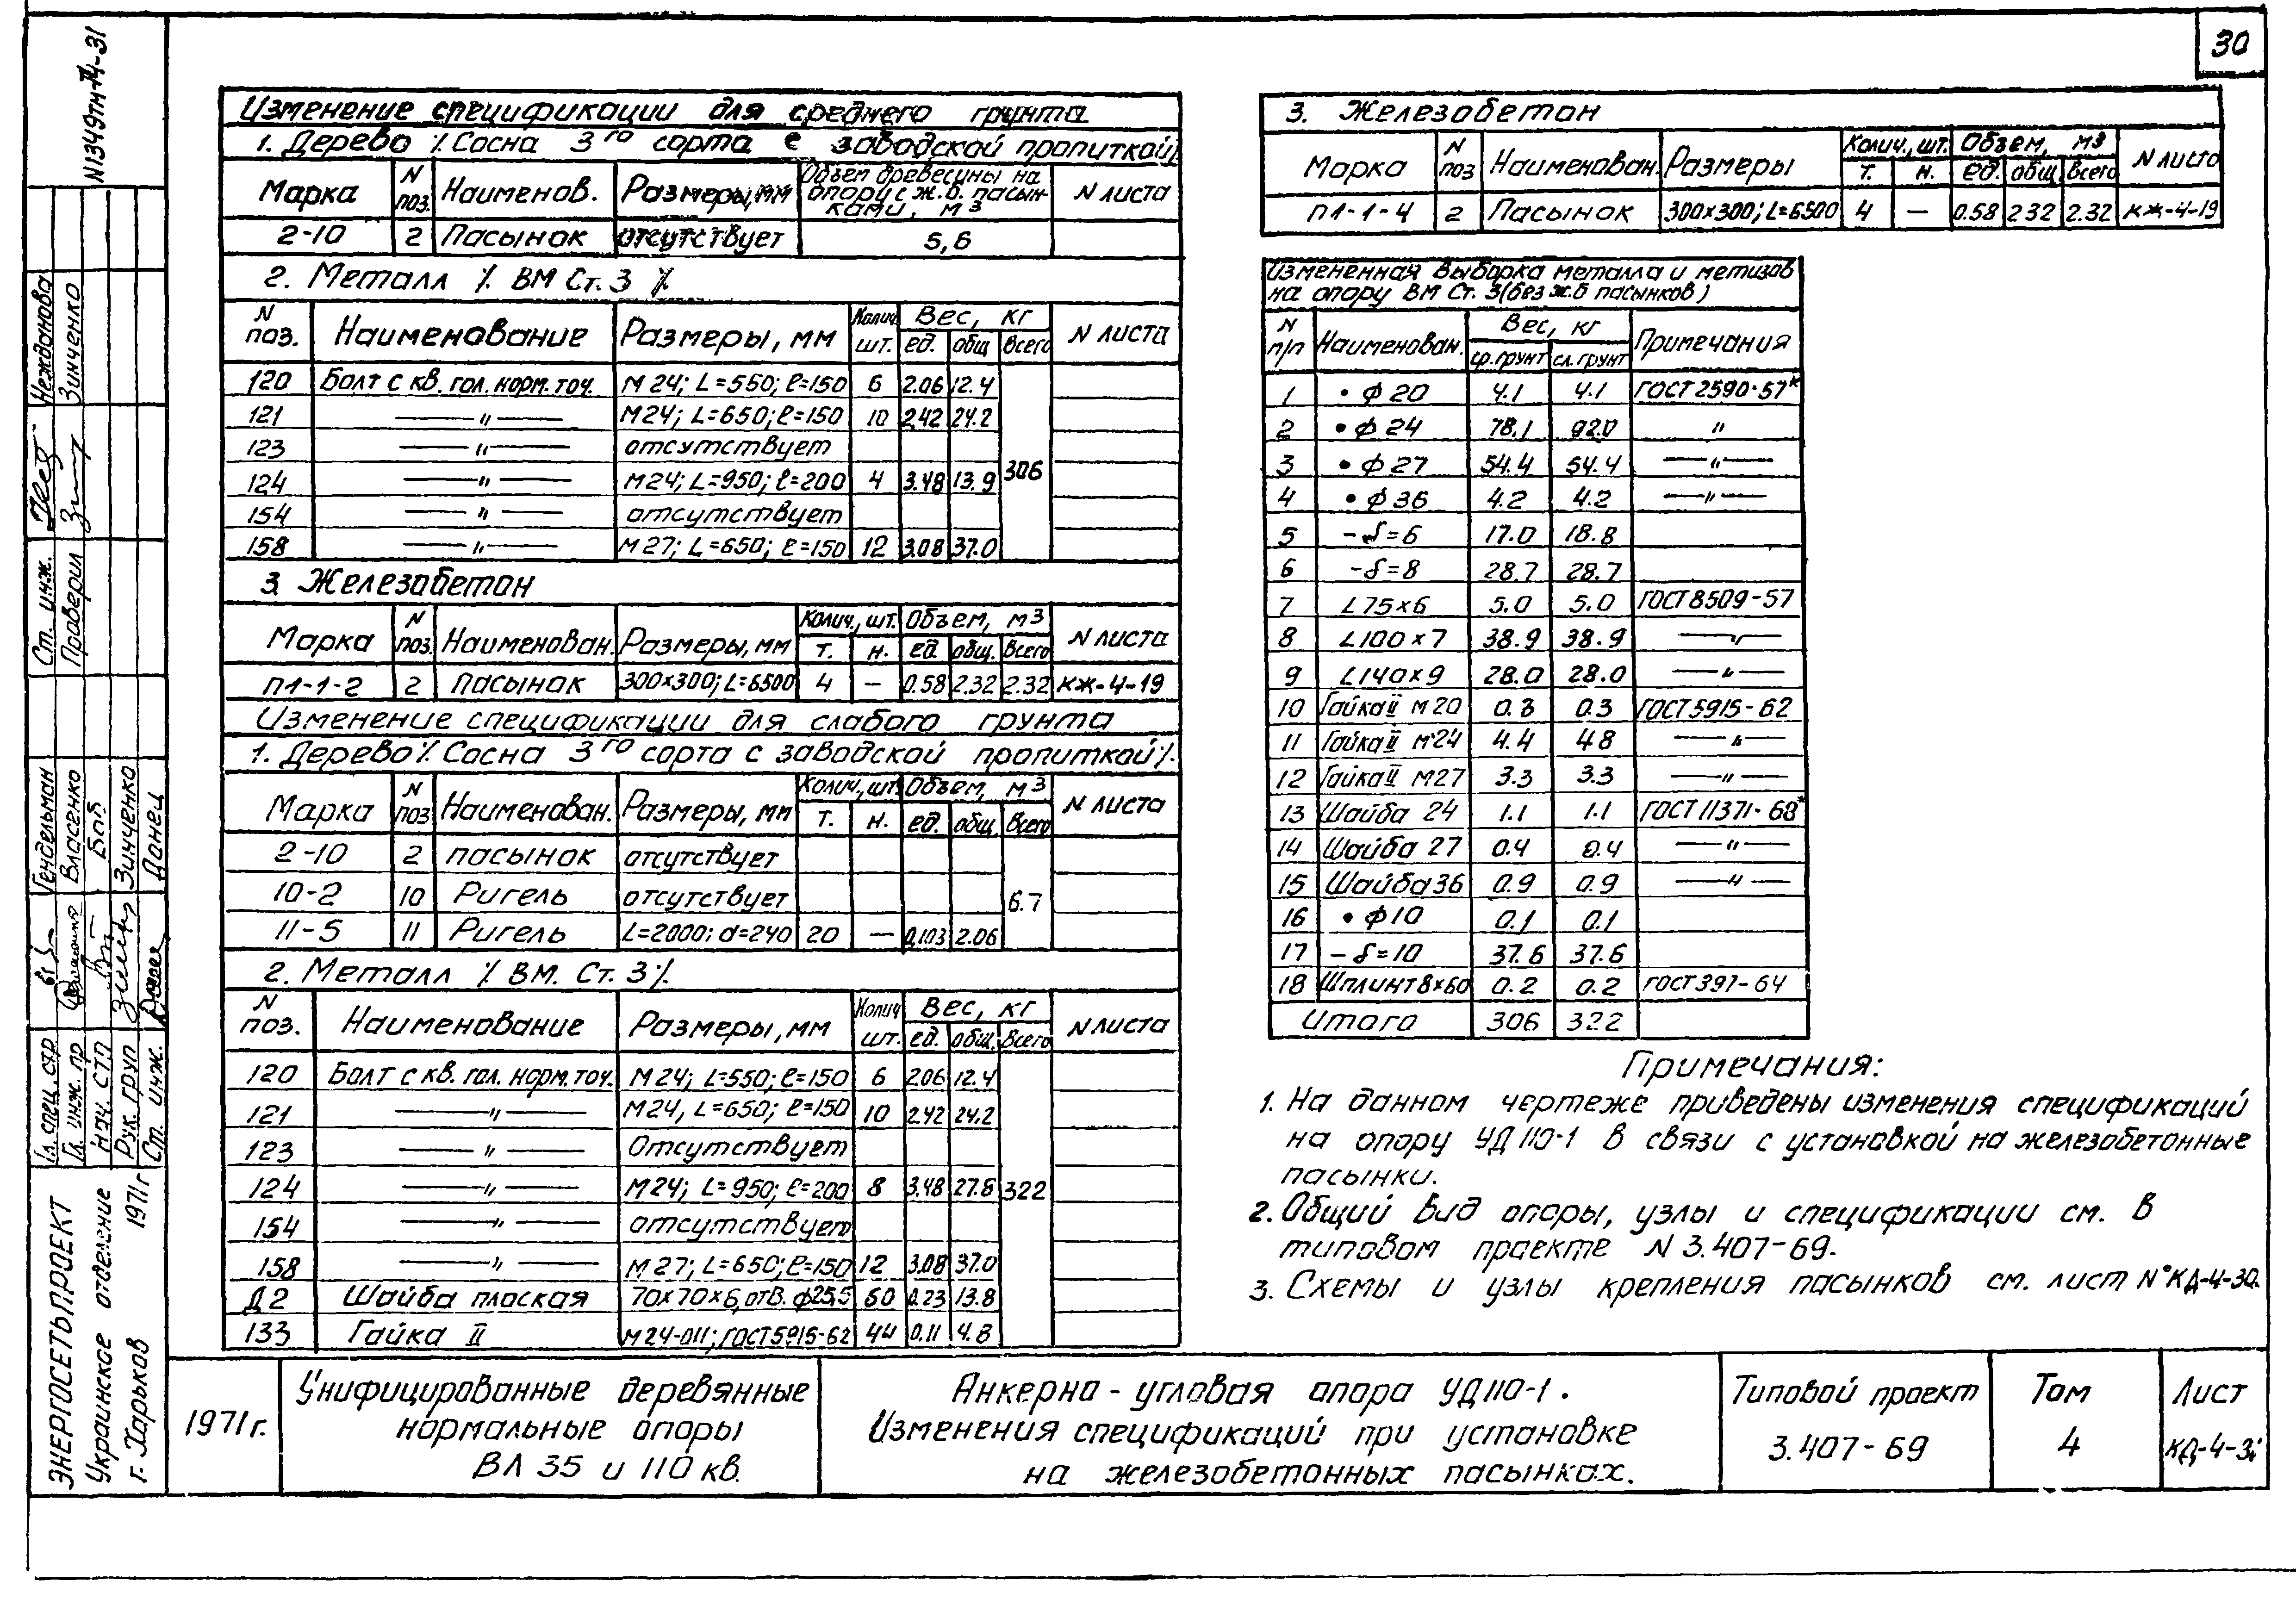 30
N1349тм-т4-31
Изменение спецификации для среднего грунта
1. Дерево /. Сосна 3го сорта с заводской пропиткой/.
Марка | N поз. | Наименов. | Размеры, мм | Объем древесины на опору с ж.б. пасынками, м3 | N листа
2-10 | 2 | Пасынок | отсутствует | 5,6
2. Металл /. ВМ Ст. 3 /.
N поз. | Наименование | Размеры, мм | Колич. шт. | Вес, кг | ед. | общ | Всего | N листа
120 | Болт с кв. гол. норм. точ. | М24; L=550; ℓ=150 | 6 | 2.06 | 12.4
121 | —"— | М24; L=650; ℓ=150 | 10 | 2.42 | 24.2
123 | —"— | отсутствует
124 | —"— | М24; L=950; ℓ=200 | 4 | 3.48 | 13.9 | 306
154 | —"— | отсутствует
158 | —"— | М27; L=650; ℓ=150 | 12 | 3.08 | 37.0
3. Железобетон
Марка | N поз. | Наименован. | Размеры, мм | Колич., шт. | т. | н. | Объем, м3 | ед. | общ. | Всего | N листа
П1-1-2 | 2 | пасынок | 300х300; L=6500 | 4 | — | 0.58 | 2.32 | 2.32 | КЖ-4-19
Изменение спецификации для слабого грунта
1. Дерево /. Сосна 3го сорта с заводской пропиткой/.
Марка | N поз | Наименован. | Размеры, мм | Колич., шт. | т. | н. | Объем, м3 | ед. | общ. | Всего | N листа
2-10 | 2 | пасынок | отсутствует
10-2 | 10 | Ригель | отсутствует | 6.7
11-5 | 11 | Ригель | L=2000; d=240 | 20 | — | 0,103 | 2.06
2. Металл /. ВМ. Ст. 3 /.
N поз. | Наименование | Размеры, мм | Колич шт. | Вес, кг | ед. | общ. | Всего | N листа
120 | Болт с кв. гол. норм. точ. | М24; L=550; ℓ=150 | 6 | 2.06 | 12.4
121 | —"— | М24, L=650; ℓ=150 | 10 | 2.42 | 24.2
123 | —"— | Отсутствует
124 | —"— | М24; L=950; ℓ=200 | 8 | 3.48 | 27.8 | 322
154 | —"— | отсутствует
158 | —"— | М27; L=650; ℓ=150 | 12 | 3.08 | 37.0
Д2 | Шайба плоская | 70х70х6, отв. ф25,5 | 60 | 0.23 | 13.8
133 | Гайка II | М24-011; ГОСТ 5915-62 | 44 | 0.11 | 4.8
3. Железобетон
Марка | N поз | Наименован. | Размеры | Колич., шт. | т. | н. | Объем, м3 | ед. | общ. | Всего | N листа
П1-1-4 | 2 | Пасынок | 300х300; L=6500 | 4 | — | 0.58 | 2 32 | 2.32 | КЖ-4-19
Измененная выборка металла и метизов
на опору ВМ Ст. 3 (без ж.б пасынков)
N п/п | Наименован. | Вес, кг | ср. грунт | сл. грунт | Примечания
1 | • ф 20 | 4.1 | 4.1 | ГОСТ 2590-57*
2 | • ф 24 | 78.1 | 92.0 | "
3 | • ф 27 | 54.4 | 54.4 | —"—
4 | • ф 36 | 4.2 | 4.2 | —"—
5 | - δ=6 | 17.0 | 18.8
6 | - δ=8 | 28.7 | 28.7
7 | L75х6 | 5.0 | 5.0 | ГОСТ 8509-57
8 | L100х7 | 38.9 | 38.9 | —"—
9 | L140х9 | 28.0 | 28.0 | —"—
10 | Гайка II М20 | 0.3 | 0.3 | ГОСТ 5915-62
11 | Гайка II М24 | 4.4 | 4.8 | —"—
12 | Гайка II М27 | 3.3 | 3.3 | —"—
13 | Шайба 24 | 1.1 | 1.1 | ГОСТ 11371-68*
14 | Шайба 27 | 0.4 | 0.4 | —"—
15 | Шайба 36 | 0.9 | 0.9 | —"—
16 | • ф 10 | 0.1 | 0.1
17 | - δ=10 | 37.6 | 37.6
18 | Шплинт 8х60 | 0.2 | 0.2 | ГОСТ 397-64
Итого | 306 | 322
Примечания:
1. На данном чертеже приведены изменения спецификаций
на опору УД 110-1 в связи с установкой на железобетонные
пасынки.
2. Общий вид опоры, узлы и спецификации см. в
типовом проекте N 3.407-69.
3. Схемы и узлы крепления пасынков см. лист N°КД-4-30.
Ст. инж. Нежданова
Проверил Зинченко
Гл. спец. стр Гендельман
Гл. инж. пр Власенко
Нач. СТП
Рук. груп Зинченко
Ст. инж. Донец
ЭНЕРГОСЕТЬПРОЕКТ
Украинское отделение
г. Харьков 1971г
1971г.
Унифицированные деревянные
нормальные опоры
ВЛ 35 и 110 кв.
Анкерно - угловая опора УД110-1.
Изменения спецификаций при установке
на железобетонных пасынках.
Типовой проект
3.407-69
Том
4
Лист
КД-4-31